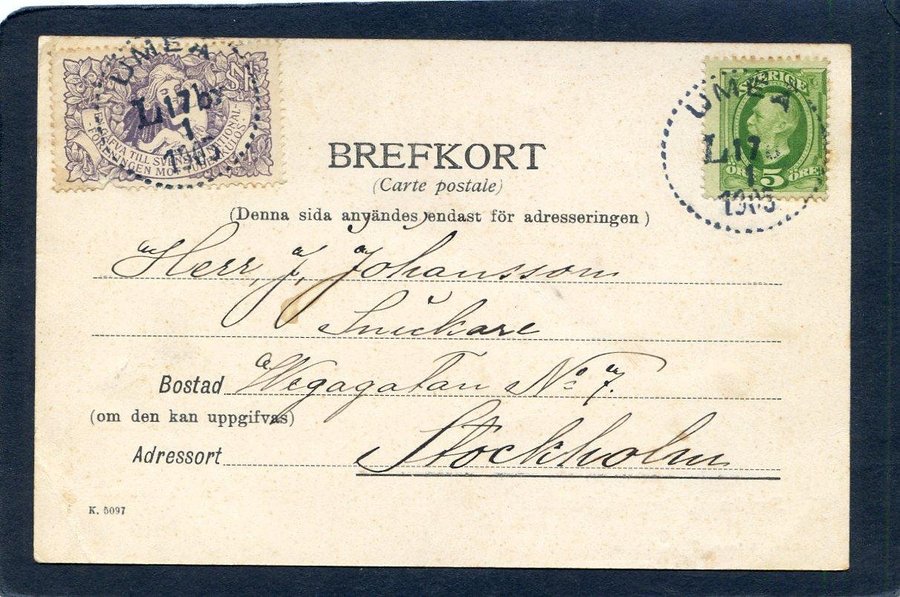 UMEÅ
L 17 bx
1
1905
GÄFVA TILL SVENSKA NATIONAL
FÖRENINGEN MOT TUBERKULOS
UMEÅ
L 17
1
1905
SVERIGE
5 ÖRE
BREFKORT
(Carte postale)
(Denna sida användes endast för adresseringen)
Herr J. Johansson
Snickare
Bostad Wegagatan No 7.
(om den kan uppgifvas)
Adressort Stockholm
K. 5097